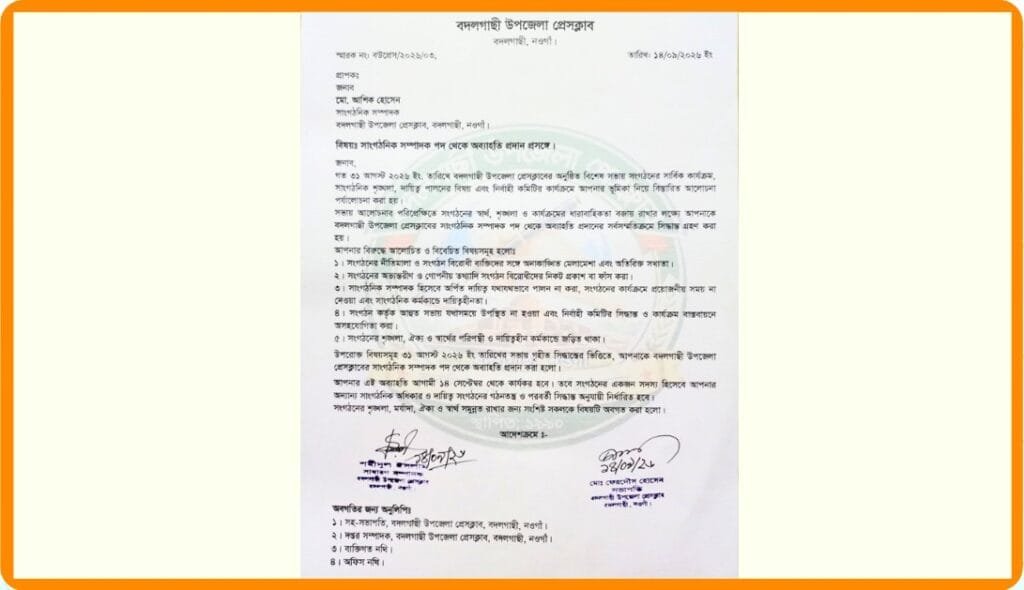 বদলগাছী উপজেলা প্রেসক্লাব
বদলগাছী, নওগাঁ।
স্মারক নং: বউপ্রেস/২০২৬/০৩,
তারিখ: ১৪/০৯/২০২৬ ইং
প্রাপকঃ
জনাব
মো. আশিক হোসেন
সাংগঠনিক সম্পাদক
বদলগাছী উপজেলা প্রেসক্লাব, বদলগাছী, নওগাঁ।
বিষয়ঃ সাংগঠনিক সম্পাদক পদ থেকে অব্যাহতি প্রদান প্রসঙ্গে।
জনাব,
গত ৩১ আগস্ট ২০২৬ ইং. তারিখে বদলগাছী উপজেলা প্রেসক্লাবের অনুষ্ঠিত বিশেষ সভায় সংগঠনের সার্বিক কার্যক্রম,
সাংগঠনিক শৃঙ্খলা, দায়িত্ব পালনের বিষয় এবং নির্বাহী কমিটির কার্যক্রমে আপনার ভূমিকা নিয়ে বিস্তারিত আলোচনা
পর্যালোচনা করা হয়।
সভায় আলোচনার পরিপ্রেক্ষিতে সংগঠনের স্বার্থ, শৃঙ্খলা ও কার্যক্রমের ধারাবাহিকতা বজায় রাখার লক্ষ্যে আপনাকে
বদলগাছী উপজেলা প্রেসক্লাবের সাংগঠনিক সম্পাদক পদ থেকে অব্যাহতি প্রদানের সর্বসম্মতিক্রমে সিদ্ধান্ত গ্রহণ করা
হয়।
আপনার বিরুদ্ধে আলোচিত ও বিবেচিত বিষয়সমূহ হলোঃ
১। সংগঠনের নীতিমালা ও সংগঠন বিরোধী ব্যক্তিদের সঙ্গে অনাকাঙ্ক্ষিত মেলামেশা এবং অতিরিক্ত সখ্যতা।
২। সংগঠনের অভ্যন্তরীণ ও গোপনীয় তথ্যাদি সংগঠন বিরোধীদের নিকট প্রকাশ বা ফাঁস করা।
৩। সাংগঠনিক সম্পাদক হিসেবে অর্পিত দায়িত্ব যথাযথভাবে পালন না করা, সংগঠনের কার্যক্রমে প্রয়োজনীয় সময় না
দেওয়া এবং সাংগঠনিক কর্মকান্ডে দায়িত্বহীনতা।
৪। সংগঠন কর্তৃক আহুত সভায় যথাসময়ে উপস্থিত না হওয়া এবং নির্বাহী কমিটির সিদ্ধান্ত ও কার্যক্রম বাস্তবায়নে
অসহযোগিতা করা।
৫। সংগঠনের শৃঙ্খলা, ঐক্য ও স্বার্থের পরিপন্থী ও দায়িত্বহীন কর্মকান্ডে জড়িত থাকা।
উপরোক্ত বিষয়সমূহ ৩১ আগস্ট ২০২৬ ইং তারিখের সভায় গৃহীত সিদ্ধান্তের ভিত্তিতে, আপনাকে বদলগাছী উপজেলা
প্রেসক্লাবের সাংগঠনিক সম্পাদক পদ থেকে অব্যাহতি প্রদান করা হলো।
আপনার এই অব্যাহতি আগামী ১৪ সেপ্টেম্বর থেকে কার্যকর হবে। তবে সংগঠনের একজন সদস্য হিসেবে আপনার
অন্যান্য সাংগঠনিক অধিকার ও দায়িত্ব সংগঠনের গঠনতন্ত্র ও পরবর্তী সিদ্ধান্ত অনুযায়ী নির্ধারিত হবে।
সংগঠনের শৃঙ্খলা, মর্যাদা, ঐক্য ও স্বার্থ সমুন্নত রাখার জন্য সংশিষ্ট সকলকে বিষয়টি অবগত করা হলো।
স্থাপিত: ১৯৯০
আদেশক্রমে :-
১৪/০৯/২৬
সাধারণ সম্পাদক
বদলগাছী উপজেলা প্রেসক্লাব
বদলগাছী, নওগাঁ।
১৪/০৯/২৬
মোঃ ফেরদৌস হোসেন
সভাপতি
বদলগাছী উপজেলা প্রেসক্লাব
বদলগাছী, নওগাঁ।
অবগতির জন্য অনুলিপিঃ
১। সহ-সভাপতি, বদলগাছী উপজেলা প্রেসক্লাব, বদলগাছী, নওগাঁ।
২। দপ্তর সম্পাদক, বদলগাছী উপজেলা প্রেসক্লাব, বদলগাছী, নওগাঁ।
৩। ব্যক্তিগত নথি।
৪। অফিস নথি।